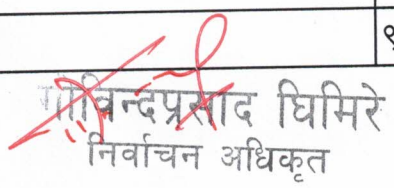 ९
गोविन्दप्रसाद घिमिरे
निर्वाचन अधिकृत